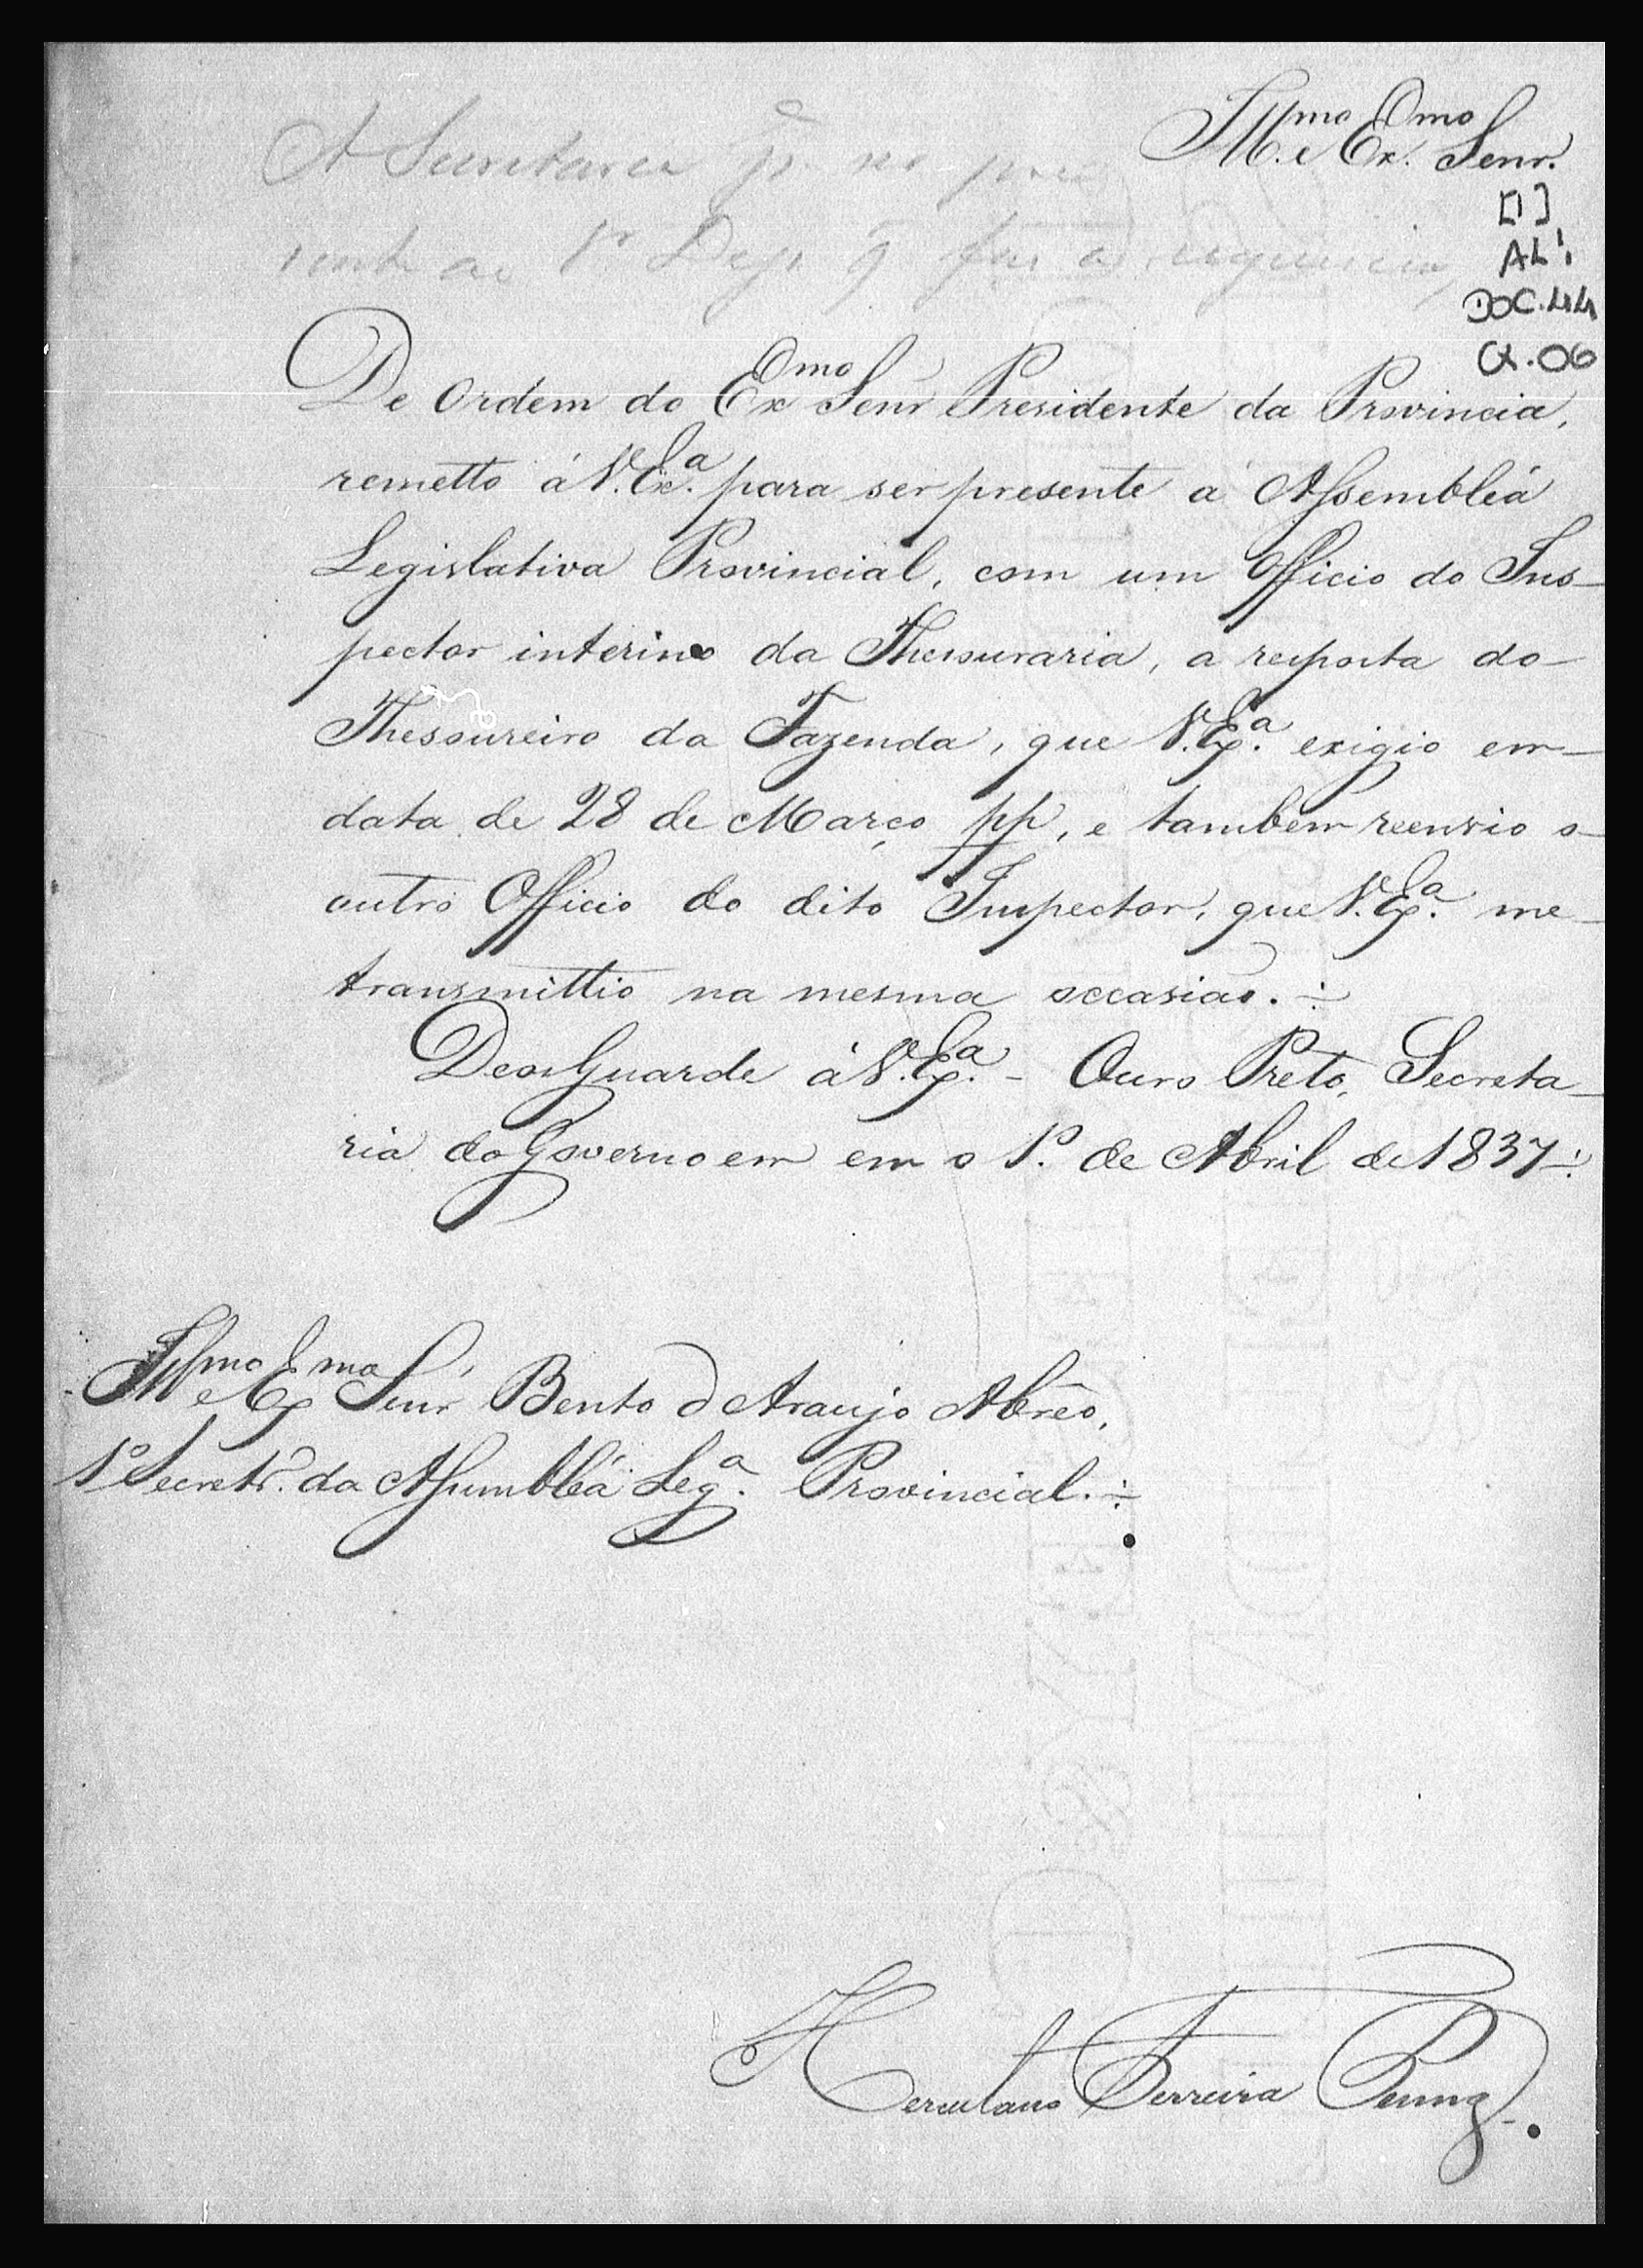 Illmo. e Exmo. Senr.
A Secretaria
[1]
AL1
DOC.44
CX.06
De Ordem do Exmo Senr Presidente da Provincia,
remetto á V. Exa. para ser presente á Assembleá
Legislativa Provincial, com um Officio do Ins-
pector interino da Thesouraria, a resposta do
Thesoureiro da Fazenda, que V. Exa. exigio em
data de 28 de Março pp, e tambem reenvio o
outro Officio do dito Inspector, que V. Exa. me
transmittio na mesma occasião. ÷
Deos Guarde á V. Exa. - Ouro Preto, Secreta-
ria do Governo em em o 1o. de Abril de 1837 ÷
Illmo e Exmo Senr Bento d Araujo Abrêo,
1o Secretro. da Assembleá Lega. Provincial. ÷
Herculano Ferreira Penna.